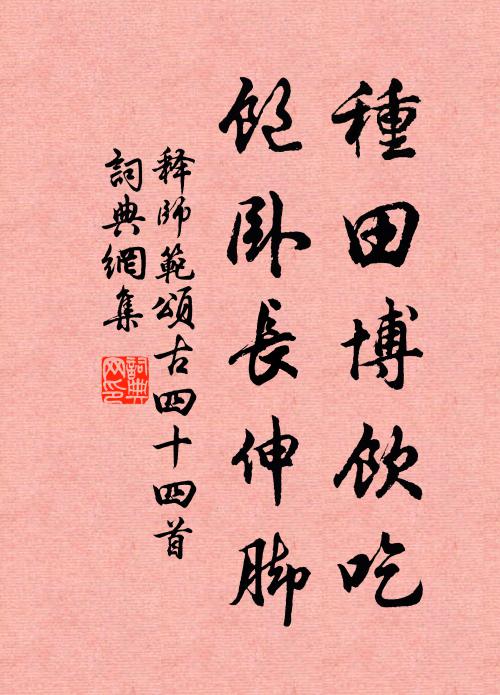 種田博飲吃
飽卧長伸脚
释師範頌古四十四首
詞典網集
詞典
网印